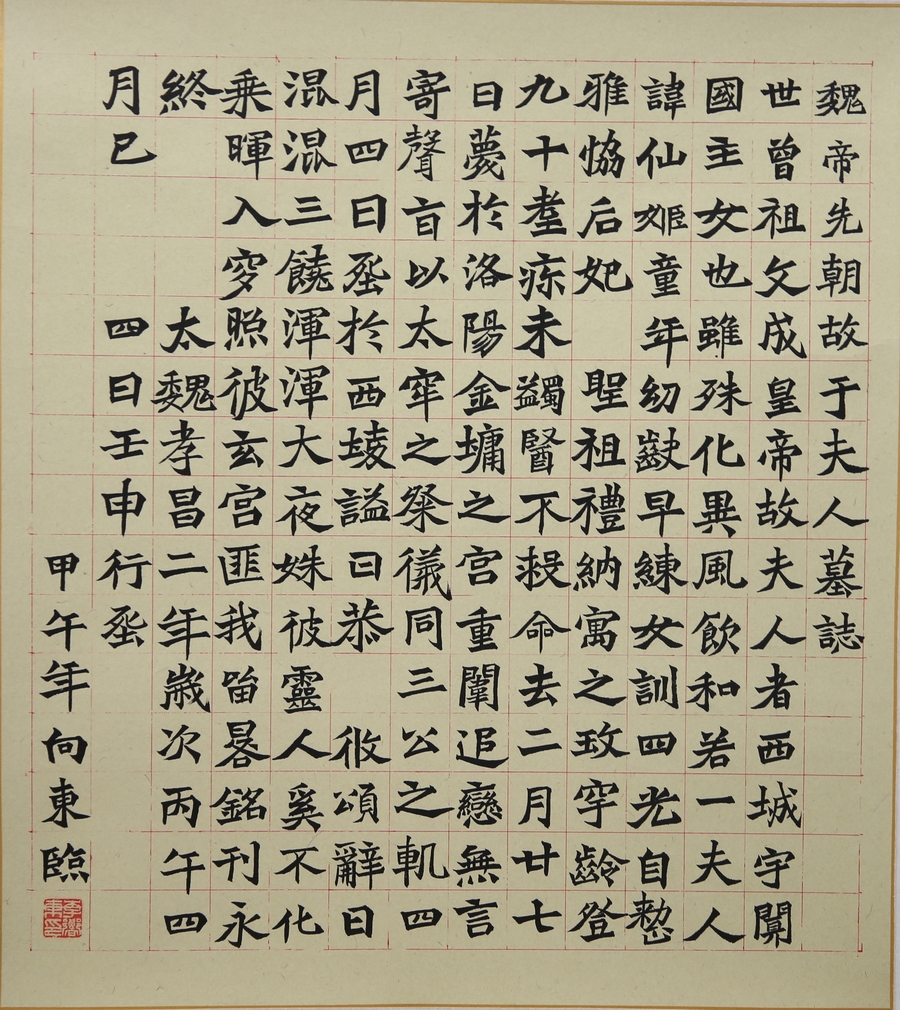 魏帝先朝故于夫人墓誌
世曾祖文成皇帝故夫人者西城宇闐
國主女也雖殊化異風飲和若一夫人
諱仙姬童年幼齔早練女訓四光自
雅協后妃 聖祖禮納寓之玫宇齡登
九十耋疹未蠲醫不救命去二月廿七
日薨於洛陽金墉之宮重闈追戀無言
寄聲旨以太牢之祭儀同三公之軌四
月四日葬於西陵謚曰恭 頌辭曰
混混三饒渾渾大夜姝彼靈人奚不化
乘暉入穸照彼玄宮匪我留晷銘刊永
終 太魏孝昌二年歲次丙午四
月己 四日壬申行葬
甲午年向東臨